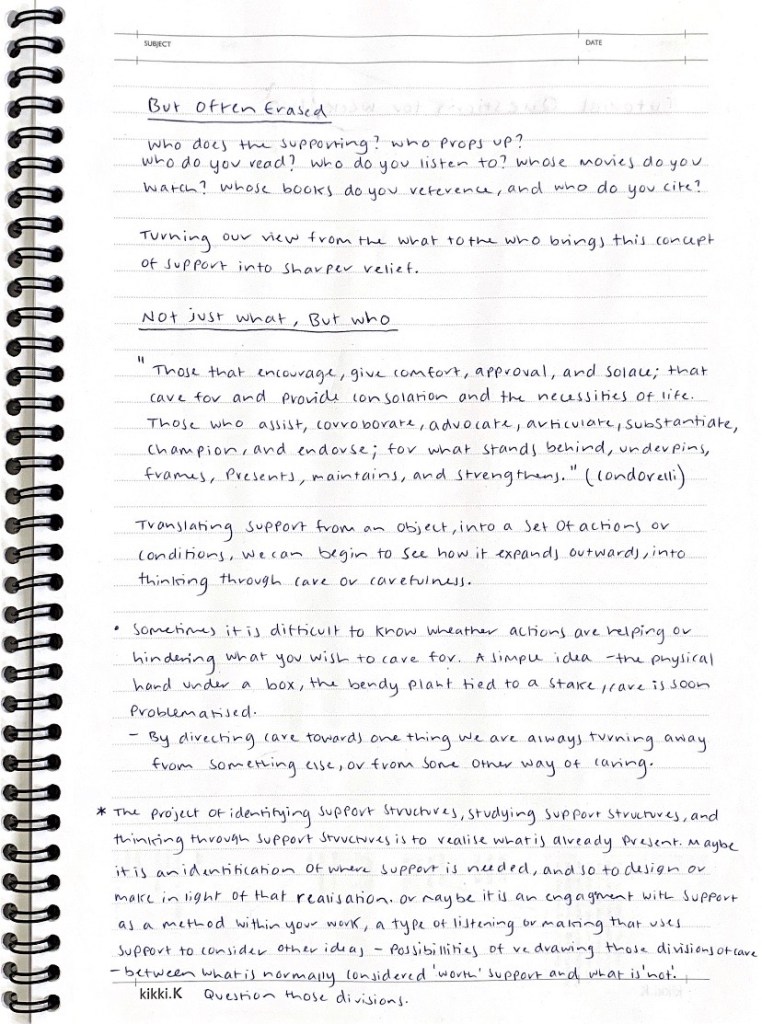 SUBJECT
DATE
But Often Erased
Who does the supporting? who props up?
who do you read? who do you listen to? whose movies do you
watch? whose books do you reference, and who do you cite?
Turning our view from the what to the who brings this concept
of support into sharper relief.
Not just what, But who
"Those that encourage, give comfort, approval, and solace; that
care for and provide consolation and the necessities of life.
Those who assist, corroborate, advocate, articulate, substantiate,
champion, and endorse; for what stands behind, underpins,
frames, presents, maintains, and strengthens." (Condorelli)
Translating support from an object, into a set of actions or
conditions, we can begin to see how it expands outwards, into
thinking through care or carefulness.
• Sometimes it is difficult to know wheather actions are helping or
hindering what you wish to care for. A simple idea - the physical
hand under a box, the bendy plant tied to a stake, care is soon
problematised.
- By directing care towards one thing we are always turning away
from something else, or from some other way of caring.
* The project of identifying support structures, studying support structures, and
thinking through support structures is to realise what is already present. Maybe
it is an identification of where support is needed, and so to design or
make in light of that realisation. or maybe it is an engagment with support
as a method within your work, a type of listening or making that uses
support to consider other ideas - possibilities of redrawing those divisions of care
- between what is normally considered 'worth' support and what is 'not'.
kikki.K Question those divisions.